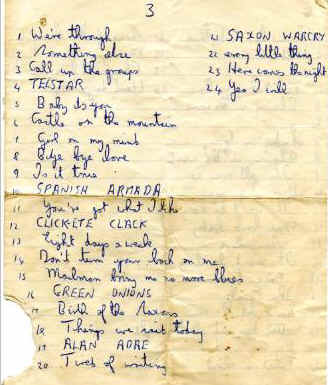 3
1 We're through
2 Something else
3 Call up the groups
4 TELSTAR
5 Baby its you
6 Castles on the mountain
7 Girl on my mind
8 Bye bye love
9 Is it true
10 SPANISH ARMADA
11 You've got what I like
12 CLICK-ETE CLACK
13 Eight days a week
14 Don't turn your back on me
15 Mailman bring me no more blues
16 GREEN ONIONS
17 Birth of the
18 Things we said today
19 ALAN ADRE
20 Tired of waiting
21 SAXON WARCRY
22 every little thing
23 Here comes the night
24 Yes I will